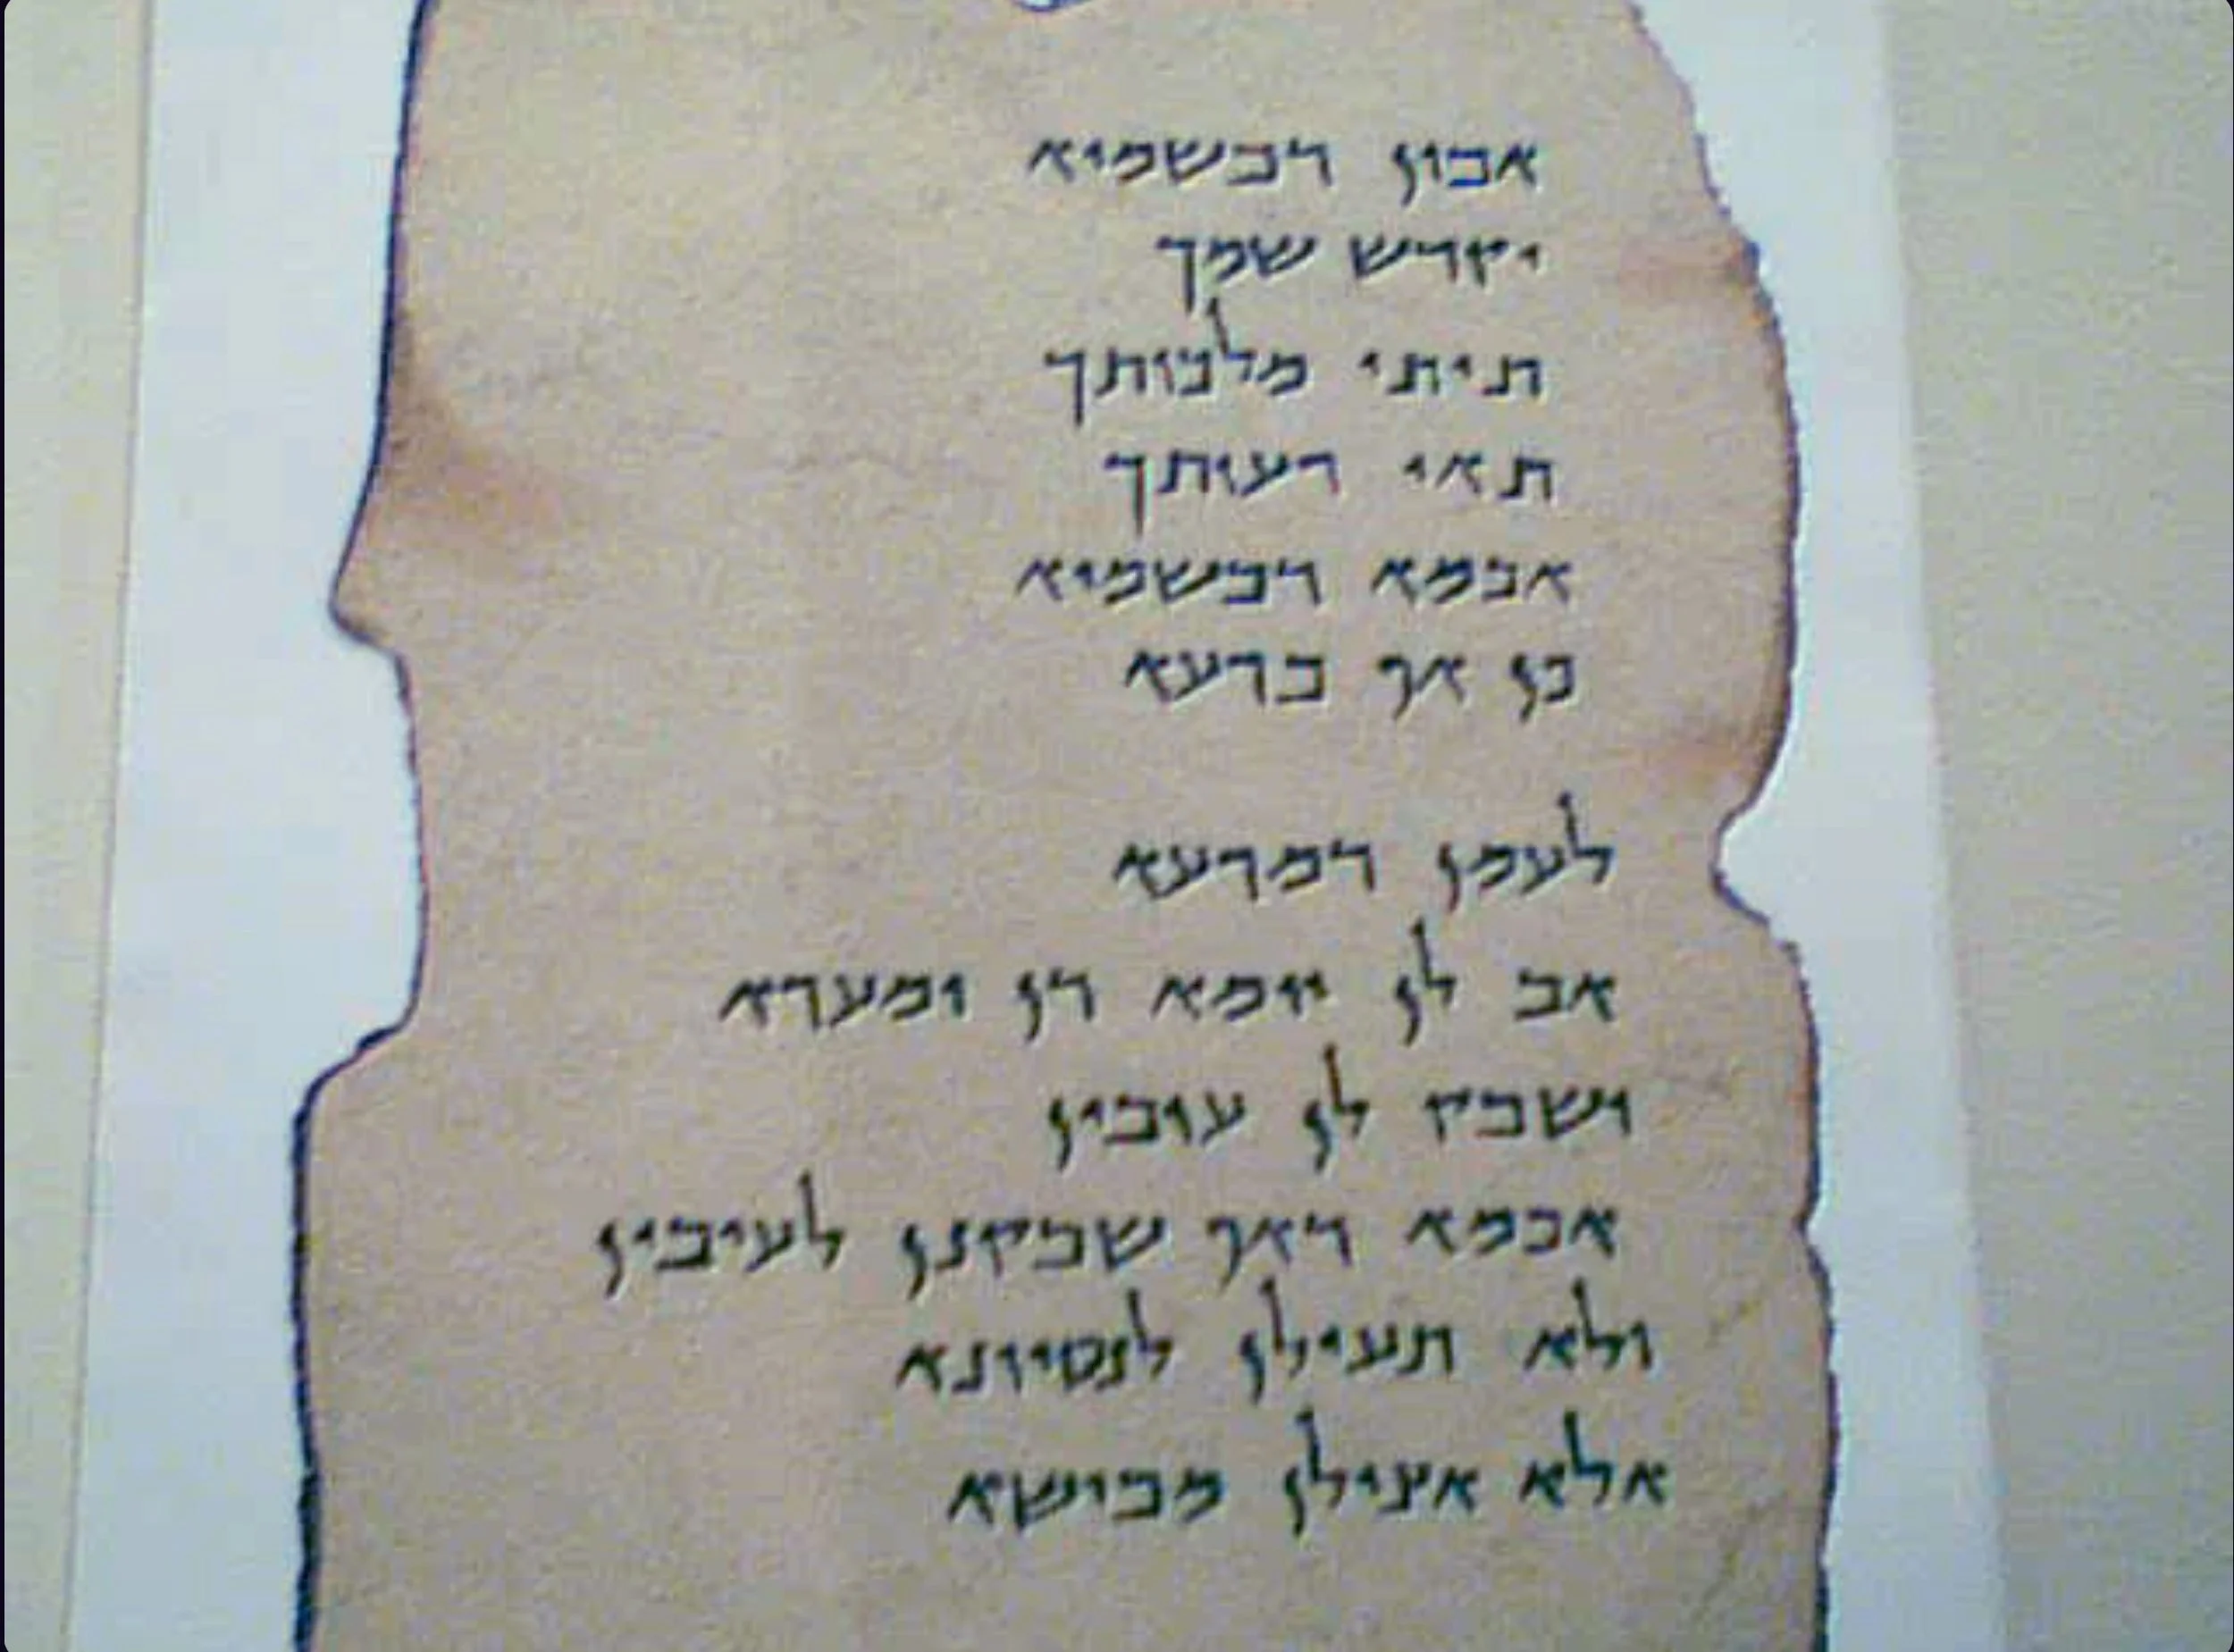 אבון דבשמיא
יקדש שמך
תיתי מלכותך
תאי רעותך
אכמא דבשמיא
כן אף ברעא
לעמן דמרעא
אב לן יומא דן ומערא
ושבק לן עובין
אכמא דאף שבקנן לעיבין
ולא תעילן לנסיונא
אלא אצילן מבישא